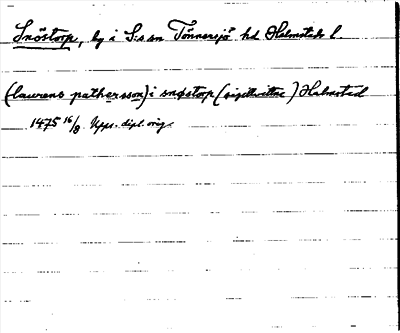 Snöstorp, by i S:s sn Tönnersjö hd Hallands l.
(laurens pethersson) i snøstorp (sigillvittne) Halmsted
1475 16/8 Upps. dipl. orig.